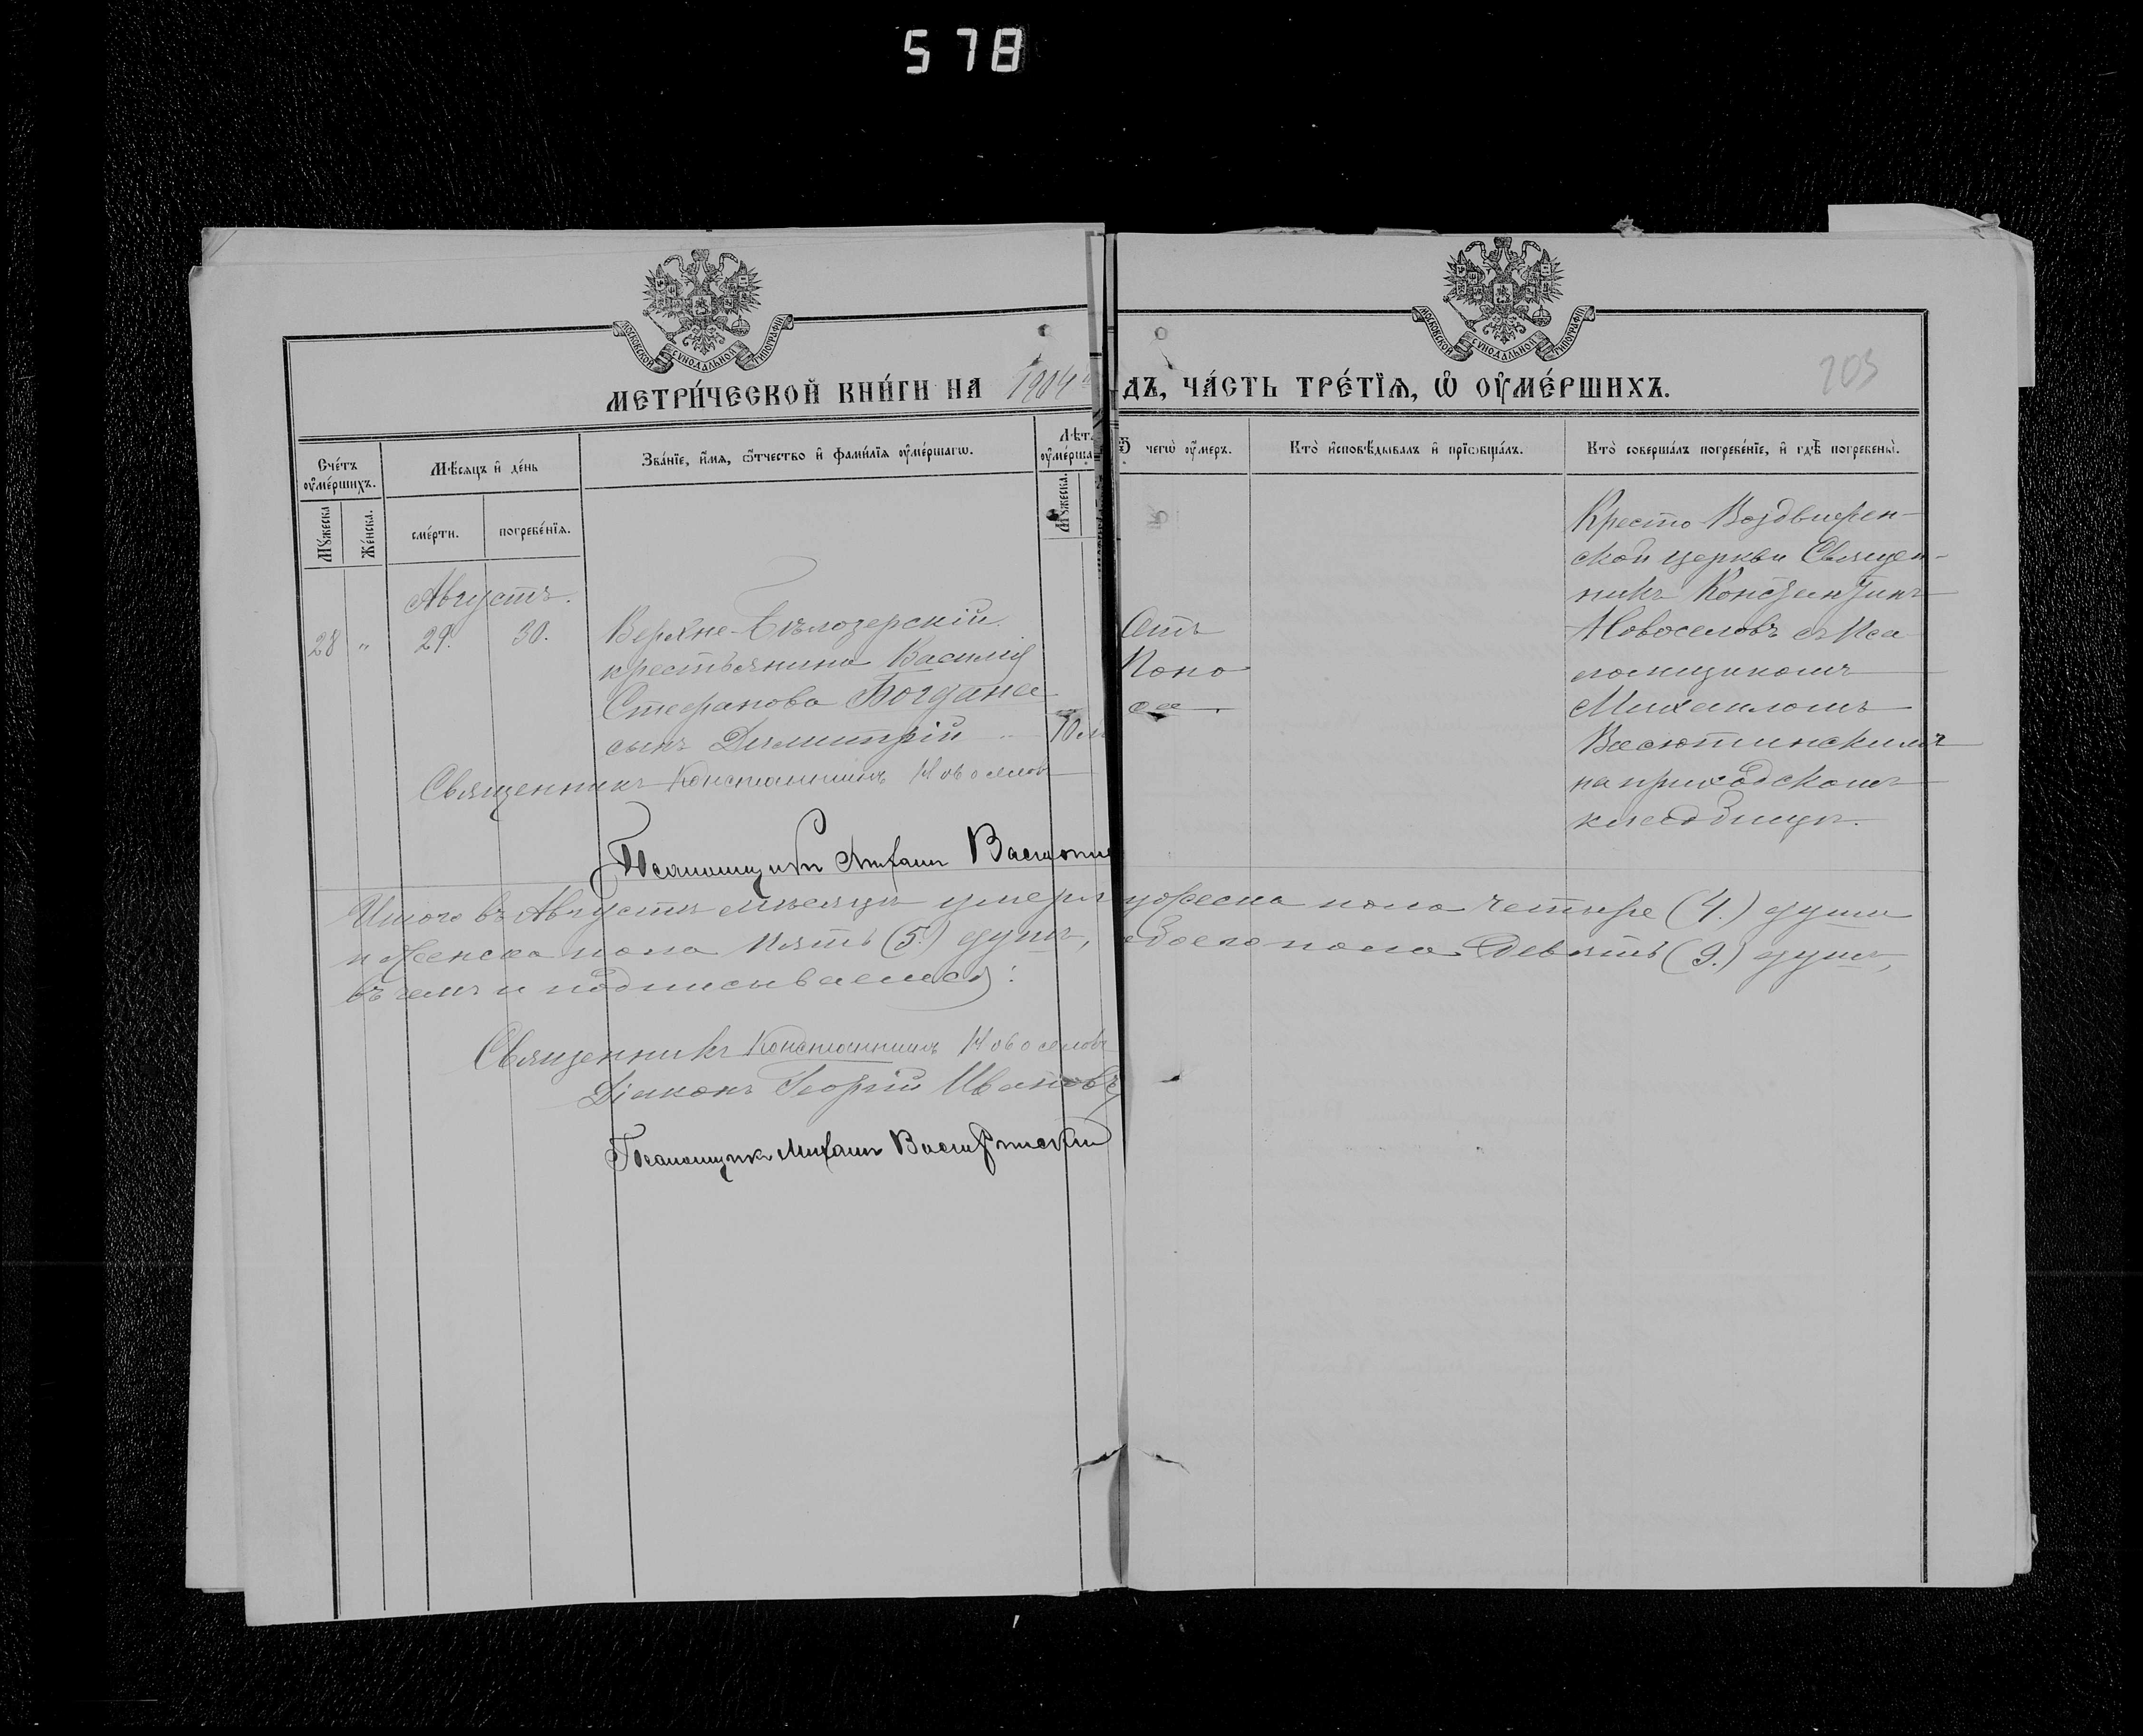 578
МОСКОВСКОЙ СУНОДАЛЬНОЙ ТИПОГРАФІИ
МОСКОВСКОЙ СУНОДАЛЬНОЙ ТИПОГРАФІИ
203
МЕТРИ́ЧЕСКОЙ КНИ́ГИ НА 1904 ДЪ, ЧА́СТЬ ТРЕ́ТЇѦ, Ѡ ОУ҆МЕ́РШИХЪ.
Сче́тъ оу҆ме́ршихъ.
Мѣ́сяцъ и҆ де́нь
Зва́нїе, и҆́мѧ, ѻ҆́тчество и҆ фами́лїѧ оу҆ме́ршагѡ.
Лѣт оу҆ме́рша
Ѿ чегѡ̀ оу҆́меръ.
Кто̀ и҆сповѣ́дывалъ и҆ прїѡбща́лъ.
Кто̀ соверша́лъ погребе́нїе, и҆ гдѣ̀ погребены̀.
Му́жеска
Же́нска.
сме́рти.
погребе́нїѧ.
Му́жеска.
Августъ.
28 " 29. 30.
Верхне-Бѣлозерскій
крестьянина Василія
Стефанова Богдана
сынъ Димитрій 10 м
Отъ
Поно
са.
Кресто Воздвижен-
ской церкви Священ-
никъ Константинъ
Новоселовъ съ Пса
ломщикомъ
Михаиломъ
Васютинскимъ
на приходскомъ
кладбищѣ.
Священникъ Константинъ Новоселовъ
Псаломщикъ Михаил Васюти
Итого въ Августѣ мѣсяцѣ умерл мужеска пола четыре (4.) души
и женска пола пять (5.) душъ, обоего пола девять (9.) душъ,
въ чемъ и подписываемся:
Священникъ Константинъ Новоселовъ
Діаконъ Георгій Ивановъ
Псаломщикъ Михаил Васютинскій